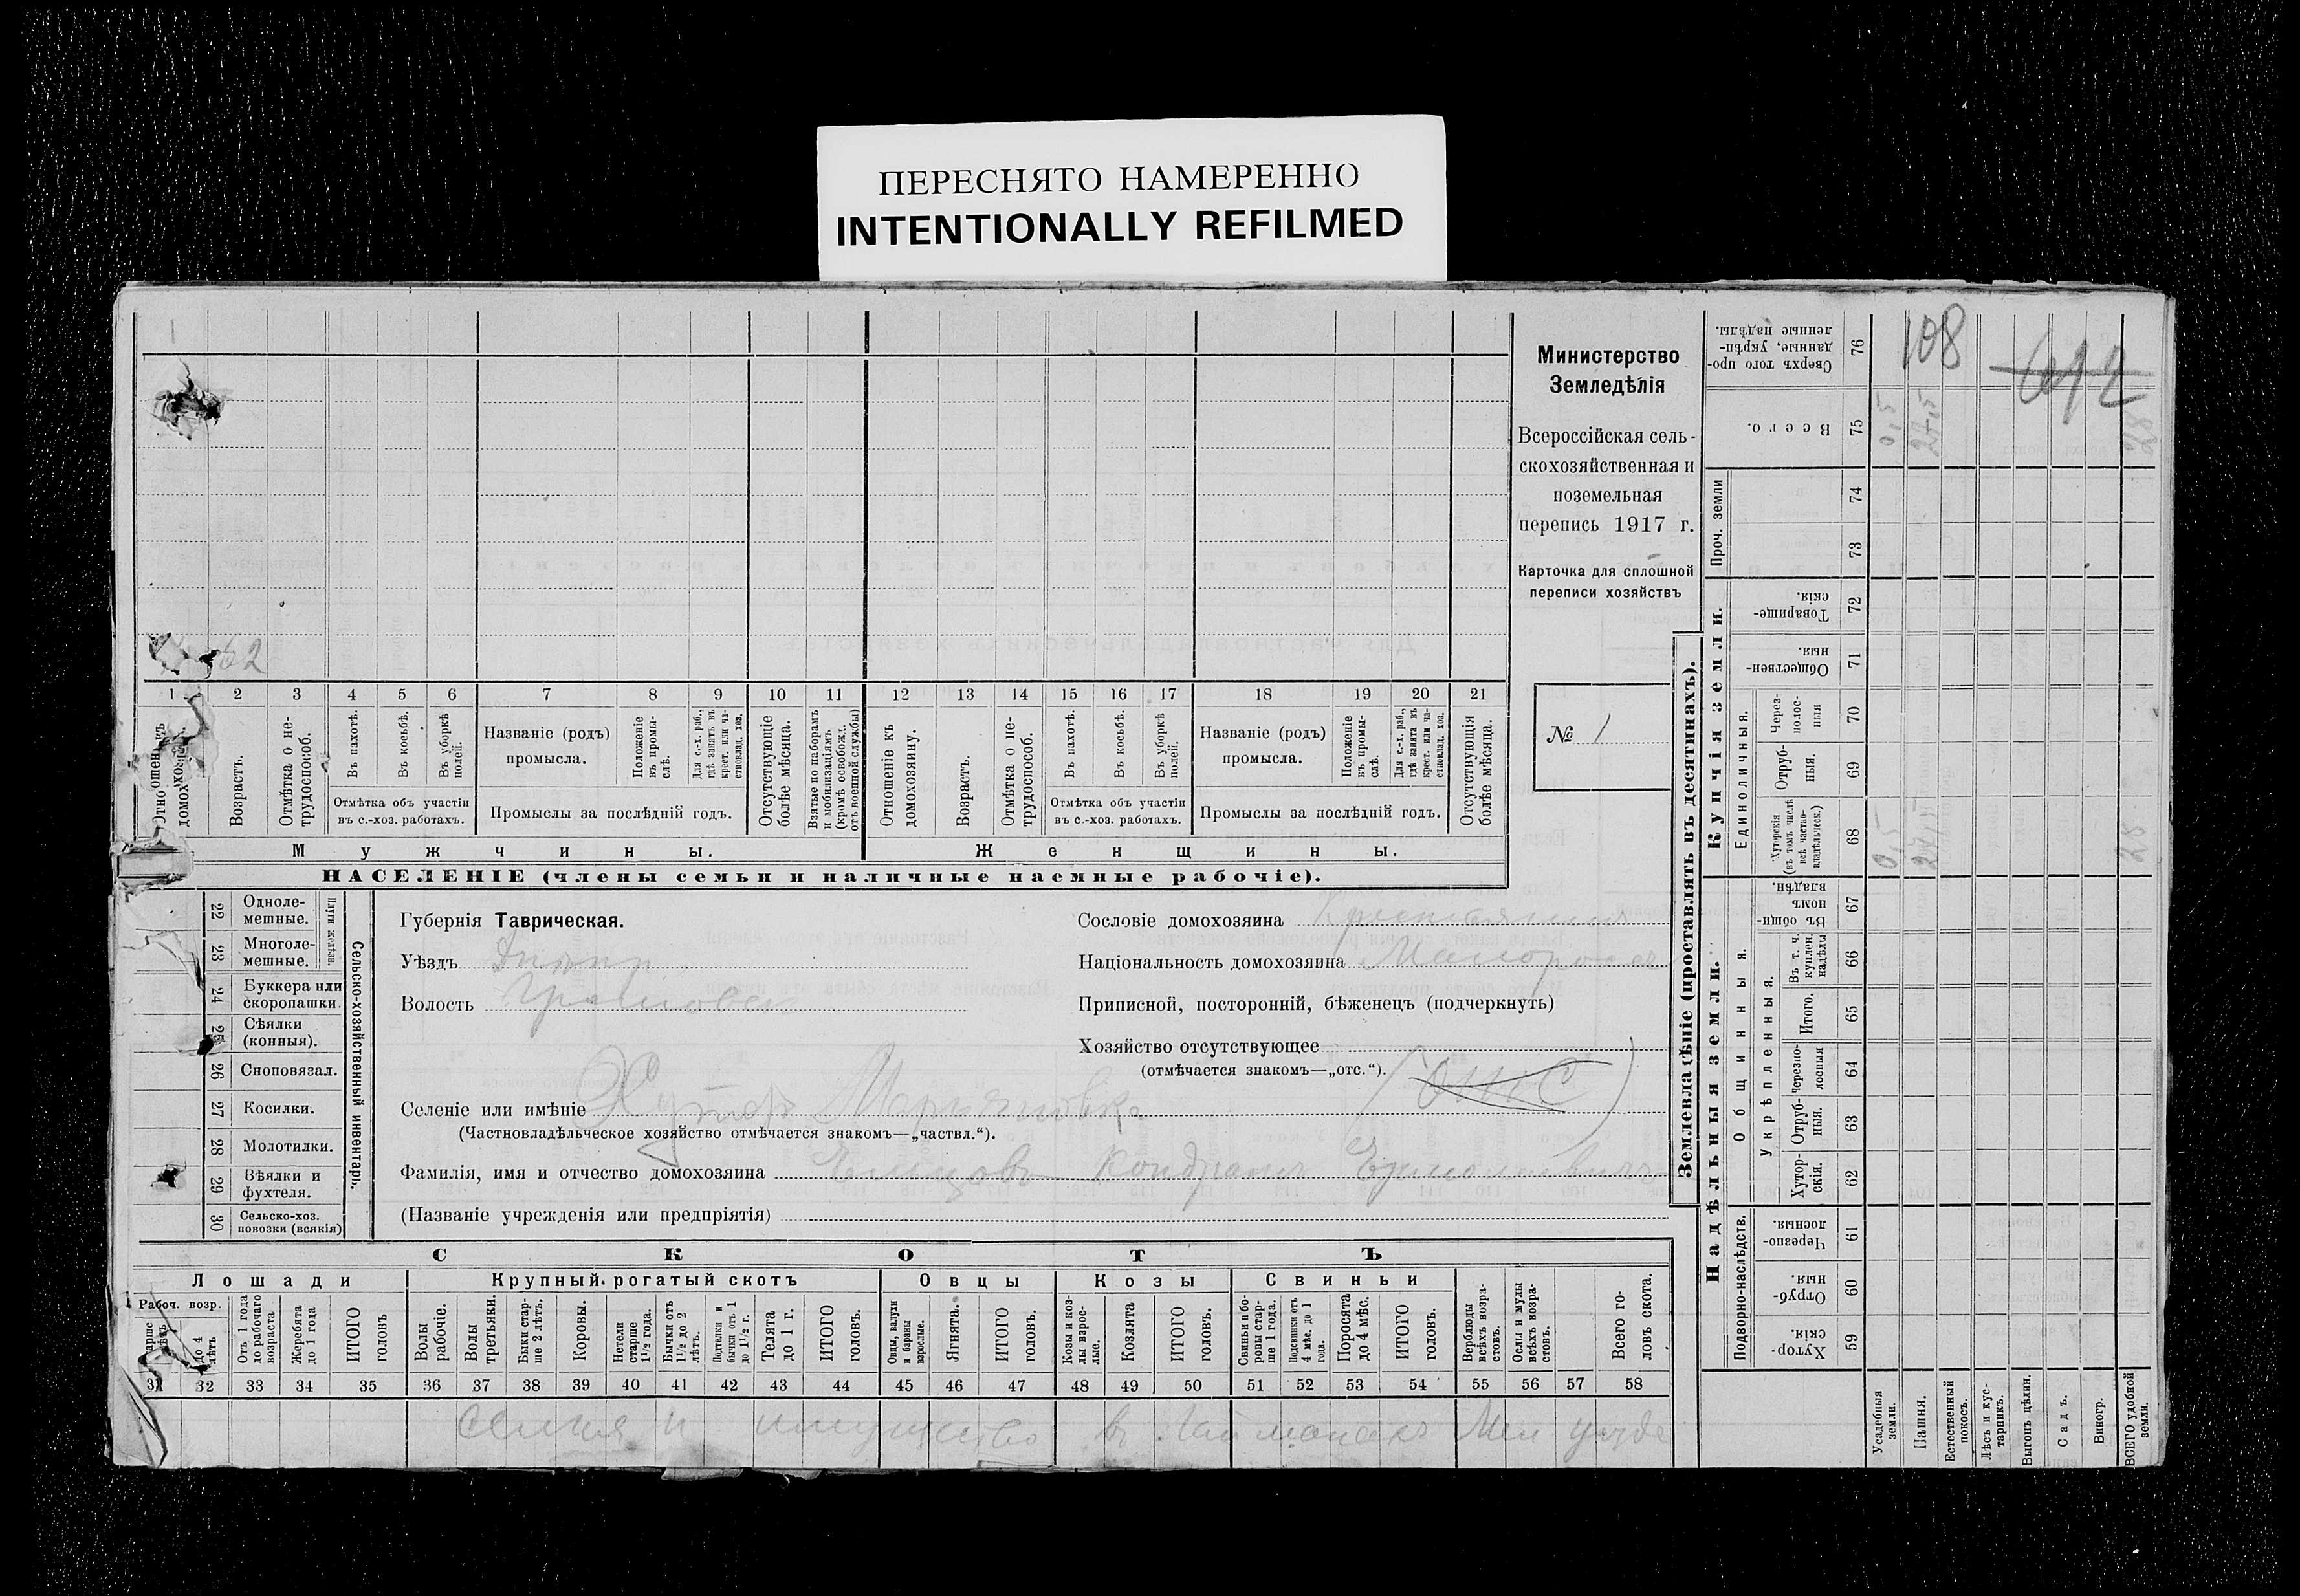 ПЕРЕСНЯТО НАМЕРЕННО
INTENTIONALLY REFILMED
Министерство
Земледѣлія
Всероссійская сель-
скохозяйственная и
поземельная
перепись 1917 г.
Карточка для сплошной
переписи хозяйствъ
№ 1
62
1 2 3 4 5 6 7 8 9 10 11 12 13 14 15 16 17 18 19 20 21
Отношеніе къ домохозяину.
Возрастъ.
Отмѣтка о не-трудоспособ.
Въ пахотѣ.
Въ косьбѣ.
Въ уборкѣ полей.
Отмѣтка объ участіи
въ с.-хоз. работахъ.
Названіе (родъ)
промысла.
Положеніе въ промы-слѣ.
Для с.-х. раб., гдѣ занятъ въ крест. или ча-стновлад. хоз.
Промыслы за послѣдній годъ.
Отсутствующіе болѣе мѣсяца.
Взятые по наборамъ и мобилизаціямъ (кромѣ освобожд. отъ военной службы)
Отношеніе къ домохозяину.
Возрастъ.
Отмѣтка о не-трудоспособ.
Въ пахотѣ.
Въ косьбѣ.
Въ уборкѣ полей.
Отмѣтка объ участіи
въ с.-хоз. работахъ.
Названіе (родъ)
промысла.
Положеніе въ промы-слѣ.
Для с.-х. раб., гдѣ занята въ крест. или ча-стновлад. хоз.
Промыслы за послѣдній годъ.
Отсутствующія болѣе мѣсяца.
Мужчины.
Женщины.
НАСЕЛЕНІЕ (члены семьи и наличные наемные рабочіе).
22 Одноле-мешные.
23 Многоле-мешные.
Плуги желѣзн.
24 Буккера или скоропашки.
25 Сѣялки (конныя).
26 Сноповязал.
27 Косилки.
28 Молотилки.
29 Вѣялки и фухтеля.
30 Сельско-хоз. повозки (всякія)
Сельско-хозяйственный инвентарь.
Губернія Таврическая.
Уѣздъ Днѣпр.
Волость
Сословіе домохозяина Крестьянинъ
Національность домохозяина Малороссъ
Приписной, посторонній, бѣженецъ (подчеркнуть)
Хозяйство отсутствующее
(отмѣчается знакомъ—„отс.“).
Селеніе или имѣніе Хуторъ
(Частновладѣльческое хозяйство отмѣчается знакомъ—„частвл.“).
Фамилія, имя и отчество домохозяина Кондратъ
(Названіе учрежденія или предпріятія)
СКОТЪ
Лошади
Крупный рогатый скотъ
Овцы
Козы
Свиньи
Рабоч. возр.
до 4 лѣтъ
Отъ 1 года до рабочаго возраста
Жеребята до 1 года
ИТОГО головъ
Волы рабочіе.
Волы третьяки.
Быки стар-ше 2 лѣтъ.
Коровы.
Нетели старше 1½ года.
Бычки отъ 1½ до 2 лѣтъ.
Подтелки и бычки отъ 1 до 1½ г.
Телята до 1 г.
ИТОГО головъ.
Овцы, валухи и бараны взрослые.
Ягнята.
ИТОГО головъ.
Козы и коз-лы взрос-лые.
Козлята
ИТОГО головъ.
Свиньи и бо-ровы стар-ше 1 года.
Подсвинки отъ 4 мѣс. до 1 года.
Поросята до 4 мѣс.
ИТОГО головъ.
Верблюды всѣхъ возра-стовъ.
Ослы и мулы всѣхъ возра-стовъ.
Всего го-ловъ скота.
31 32 33 34 35 36 37 38 39 40 41 42 43 44 45 46 47 48 49 50 51 52 53 54 55 56 57 58
семья и имущество в
Землевладѣніе (проставлять въ десятинахъ).
Надѣльныя земли.
Купчія земли.
Подворно-наслѣдств.
Общинныя.
Укрѣпленныя.
Единоличныя.
Проч. земли
Хутор-скія. 59
Отруб-ныя. 60
Черезпо-лосныя 61
Хутор-скія. 62
Отруб-ныя. 63
Черезпо-лосныя 64
Итого. 65
Въ т. ч. куплен. надѣлы 66
Въ общи-номъ владѣн. 67
Хуторскія (въ томъ числѣ всѣ частно-владѣльческ.) 68
Отруб-ныя. 69
Через-полос-ныя 70
Обществен-ныя. 71
Товарище-скія. 72
73
74
Всего. 75
Сверхъ того про-данные, укрѣп-ленные надѣлы. 76
Усадебныя земли.
Пашня.
Естественный покосъ.
Лѣсъ и кус-тарникъ.
Выгонъ цѣлин.
Садъ.
Виногр.
ВСЕГО удобной земли.
0,5
27,5
28
0,5
27,5
28
108
612